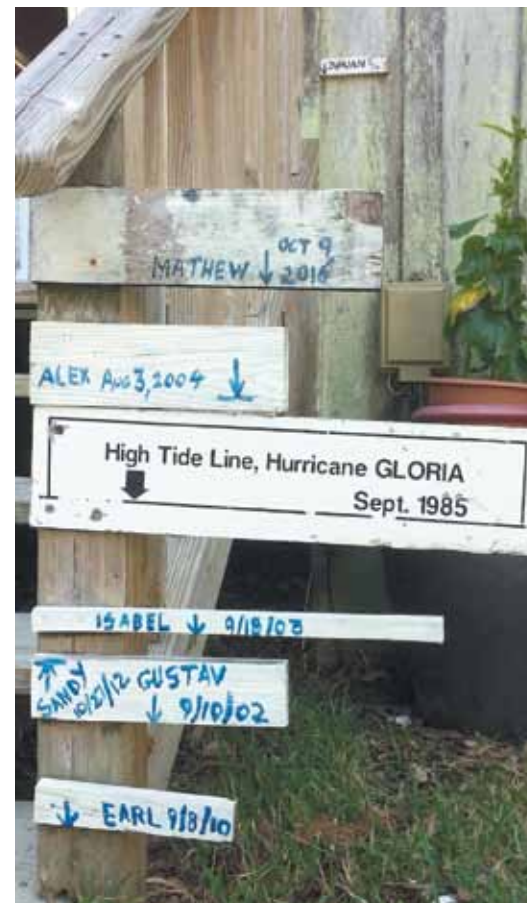 OCT 9
MATHEW ↓ 2016
ALEX AUG 3, 2004 ↓
High Tide Line, Hurricane GLORIA
Sept. 1985
ISABEL ↓ 9/18/03
SANDY
GUSTAV
↓ 9/10/02
↓ EARL 9/8/10